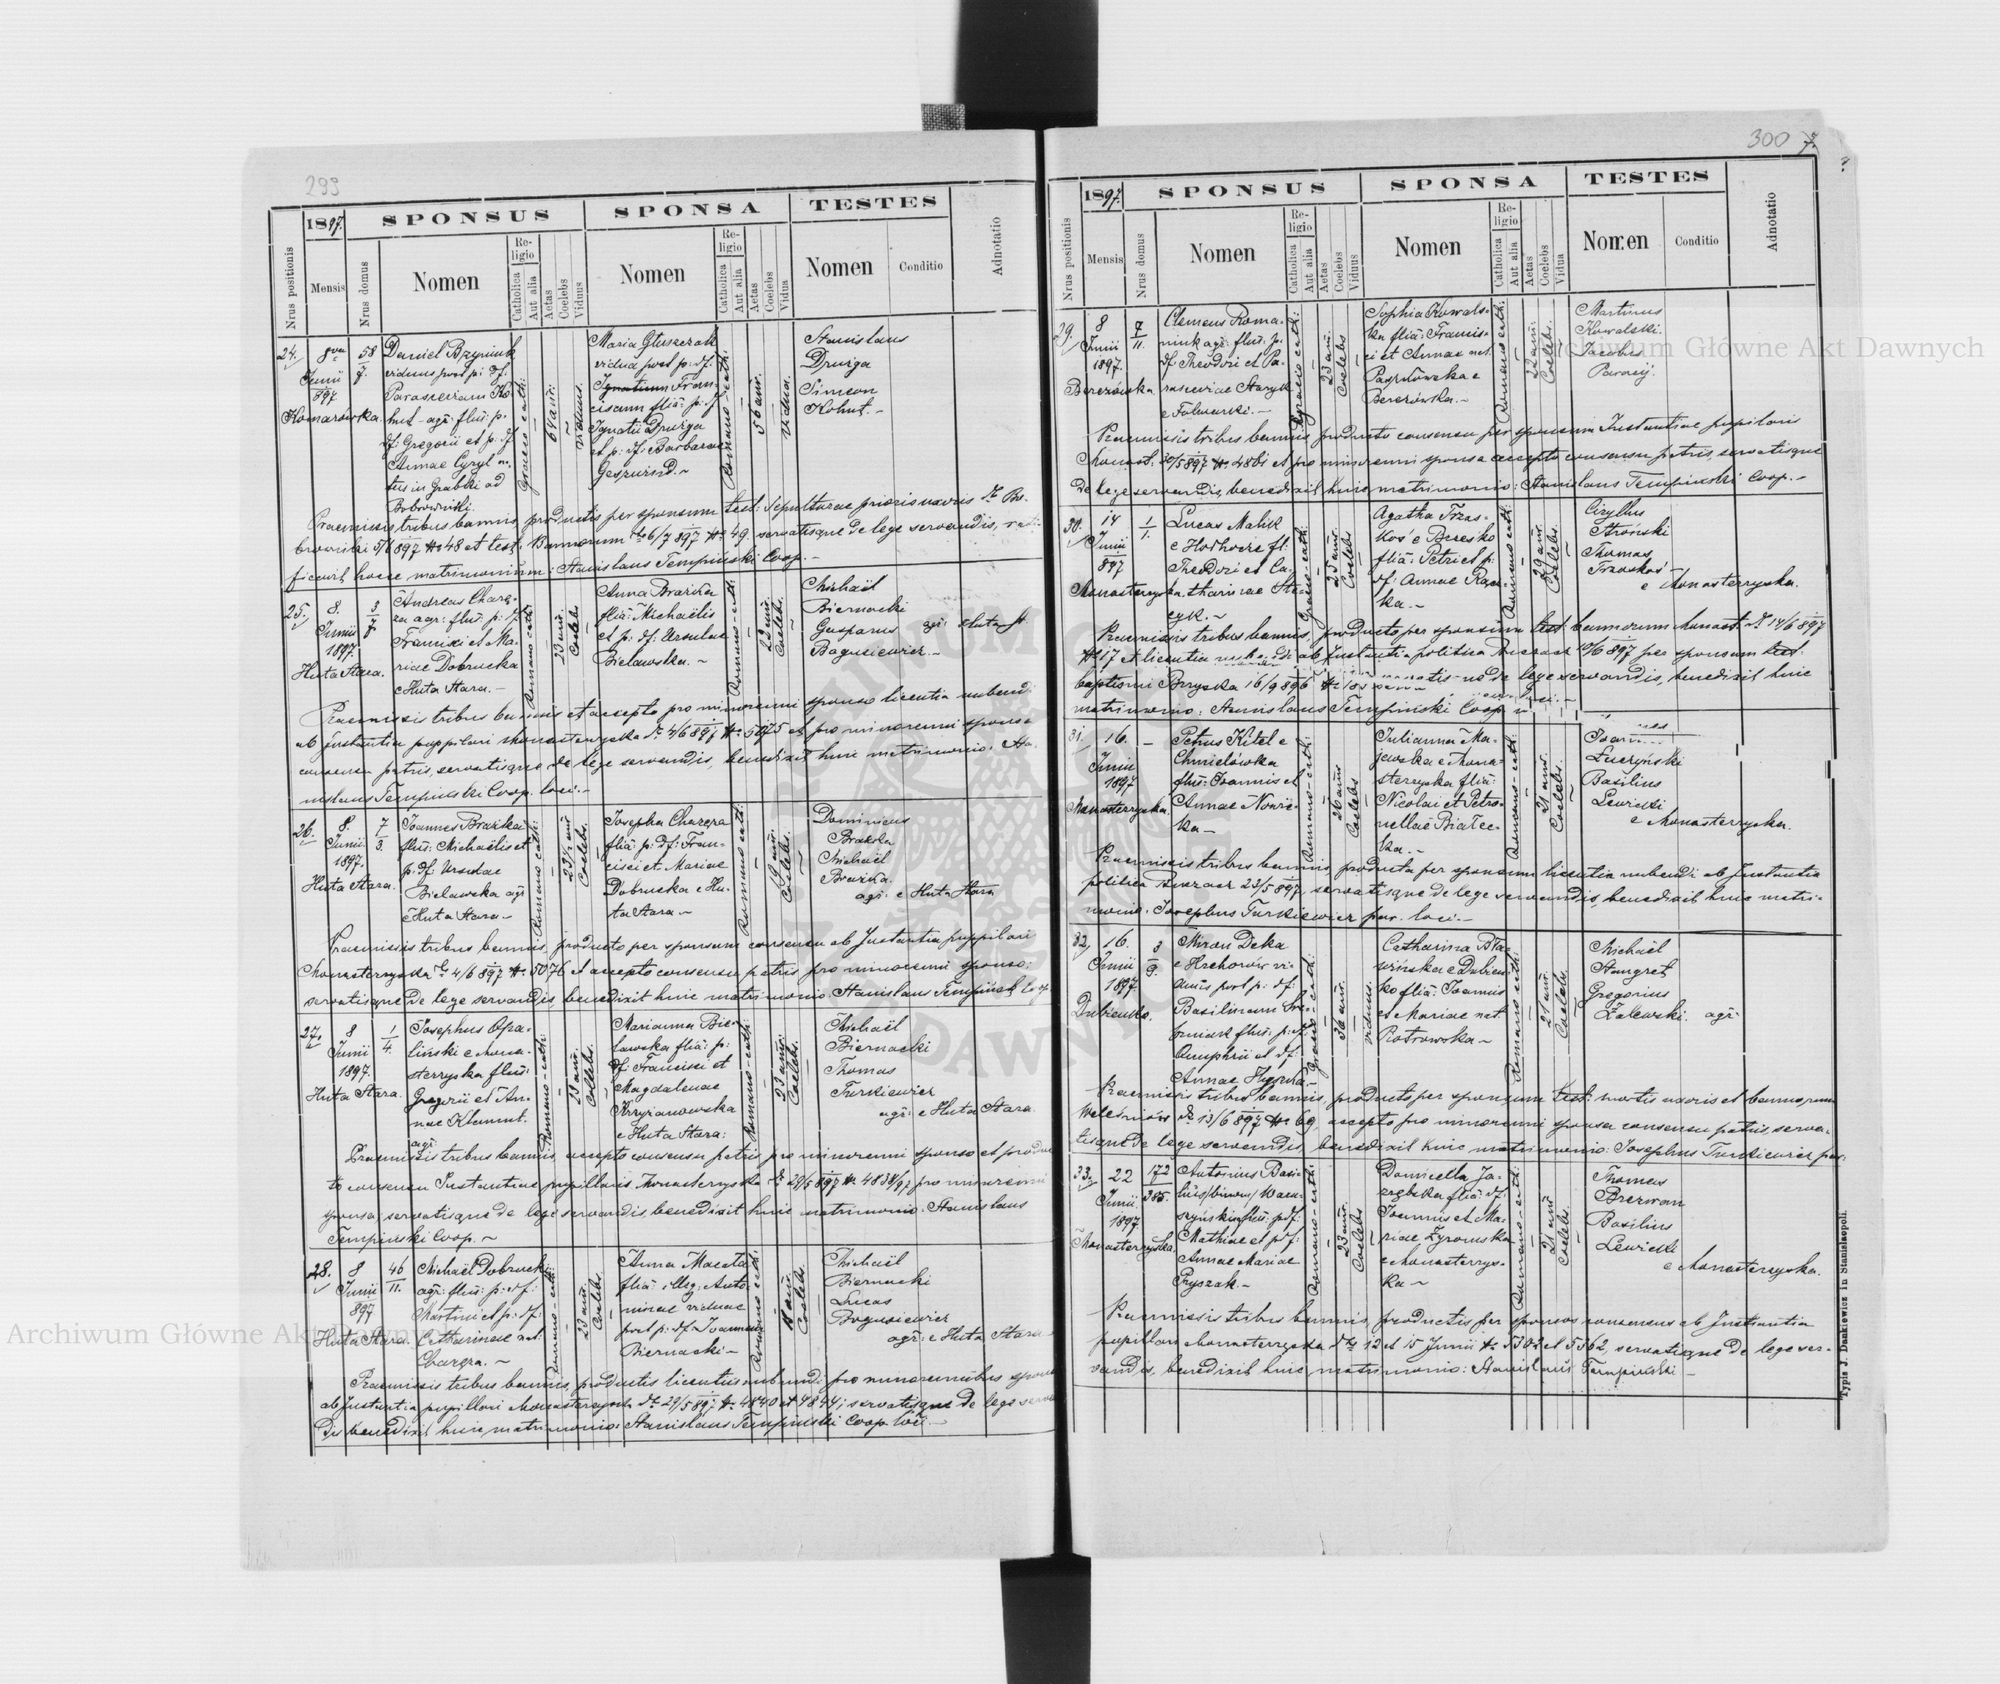 299
1897.
SPONSUS
SPONSA
TESTES
Nrus positionis
Mensis
Nrus domus
Nomen
Religio
Catholica
Aut alia
Aetas
Coelebs
Viduus
Nomen
Religio
Catholica
Aut alia
Aetas
Coelebs
Vidua
Nomen
Conditio
Adnotatio
24.
Junii
897
Komarówka.
58
7.
Daniel
viduus post p: df:
Parascevam Ko-
hut agr: filius: p:
df: Gregorii et p: df
Annae Cyryl
Bobrowniki
Graeco cath:
viduus.
Maria Głuszczak
vidua post p: df:
Ignatium Fran-
ciscum filia: p: df
Ignatii Druiga
et p: df: Barbarae
Romano-cath:
56 ann.
Vidua.
Stanislaus
Druiga
Simeon
Kohut.-
Praemissis tribus bannis, productis per sponsum test: sepulturae prioris uxoris
servatisque de lege servandis, rati-
ficavit hocce matrimonium: Stanislaus Tempiński Coop.-
25.
8.
Junii
1897.
Huta Stara.
3
7
Andreas Charę-
za agr: filius: p: df.
Francisci et Ma-
riae Dobrucka
e Huta Stara.-
Romano cath:
23 ann.
Coelebs
Anna Brażka
filia: Michaëlis
et p: df: Ursulae
Bielawska.-
Romano-cath:
22 ann.
Coelebs.
Michaël
Biernacki
Gasparus
Bogusiewicz.-
agr: Huta St
Praemissis tribus bannis et accepto pro minorenni sponso licentia nubendi
ab Instantia pupillari Monasterzyska
consensu patris, servatisque de lege servandis, benedixit huic matrimonio. Sta-
nislaus Tempiński Coop. loci.-
26.
8.
Junii
1897.
Huta Stara.
7
3.
Joannes Brażka
filius: Michaëlis et
p: df. Ursulae
Bielawska agr
e Huta Stara-
Romano cath:
23½ ann
Coelebs.
Josepha Charęza
filia p: df: Fran-
cisci et Mariae
Dobrucka e Hu-
ta Stara-
Romano cath:
19 ann.
Coelebs.
Dominicus
Brażka
Michaël
Brażka.
agr. e Huta Stara
Praemissis tribus bannis, producto per sponsum consensu ab Instantia pupillari
Monasterzyska 4/6 897 No. 5076 et accepto consensu patris pro minorenni sponso;
servatisque de lege servandis, benedixit huic matrimonio. Stanislaus Tempiński
27.
8
Junii
1897.
Huta Stara.
1
4.
Josephus Opa-
liński e Mona-
sterzyska filius:
Gregorii et An-
nae Klement.
agr:
Romano-cath:
23 ann.
Coelebs.
Marianna Bie-
lawska filia: p:
df: Francisci et
Magdalenae
Krzyżanowska
e Huta Stara:
Romano-cath:
23 ann.
Coelebs.
Michaël
Biernacki
Thomas
Turkiewicz
agr: e Huta Stara
Praemissis tribus bannis, accepto consensu patris pro minorenni sponso et produc-
to consensu Instantiae pupillaris Monasterzyska 29/5 897 No. 4838/97 pro minorenni
sponsa, servatisque de lege servandis, benedixit huic matrimonio: Stanislaus
Tempiński Coop.-
28.
8
Junii
897
Huta Stara.
46
11.
Michaël Dobrucki
agr: filius: p: df:
Martini et p: df:
Catharinae nat:
Charęza.-
Romano-cath:
23 ann.
Coelebs.
Anna Macała
filia: illeg: Anto-
ninae viduae
post p: df. Joannem
Biernacki-
Romano cath:
18 ann
Coelebs.
Michaël
Biernacki
Lucas
Bogusiewicz
agr: e Huta Stara
Praemissis tribus bannis, productis licentiis nubendi pro minorennibus sponsis
ab Instantia pupillari Monasterzyska dto 29/5 897 No. 4840 et 4844; servatisque de lege servan-
dis, benedixit huic matrimonio: Stanislaus Tempiński Coop. loci.-
300
1897.
SPONSUS
SPONSA
TESTES
Nrus positionis
Mensis
Nrus domus
Nomen
Religio
Catholica
Aut alia
Aetas
Coelebs
Viduus
Nomen
Religio
Catholica
Aut alia
Aetas
Coelebs
Vidua
Nomen
Conditio
Adnotatio
29.
8
Junii
1897.
Berezówka
7
11.
Clemens Roma-
niuk agr: filius: p.
df. Theodori et Pa-
rasceviae Staryk
e Folwarki.-
Graeco cath:
23 ann.
Coelebs
Sophia Kowals-
ka filia: Francis-
ci et Annae nat.
e
Berezówka.-
Romano cath:
22 ann.
Coelebs.
Martinus
Kowalski.
Jacobus
Praemissis tribus bannis, producto consensu per sponsum Instantiae pupilaris
Monast: 30/5 897 et pro minorenni sponsa accepto consensu patris, servatisque
de lege servandis, benedixit huic matrimonio: Stanislaus Tempiński Coop.-
30.
14
Junii
897
Monasterzyska
1
1.
Lucas Malik
e Hodhocze fil:
Theodori et Ca-
tharinae
Graeco-cath:
25 ann.
Coelebs
Agatha Trzas-
koś e Beresko
filia: Petri et p:
df: Annae
ka.-
Romano cath:
29 ann.
Coelebs
Cyrillus
Stroński
Thomas
Trzaskoś-
e Monasterzyska.
Praemissis tribus bannis, producto per sponsum test: bannorum Monast. 14/6 897
No 17 et licentia nubendi ab Instantia politica Buczacz 10/6 897 per sponsum test:
baptismi 16/9 896 de lege servandis, benedixit huic
matrimonio: Stanislaus Tempiński Coop.
31.
16.
Junii
1897
Monasterzyska.
Petrus Kitel e
Chmielówka
filius: Joannis et
Annae Nowic-
ka-
Romano-cath:
26 ann
Coelebs
Julianna Ma-
jewska e Mona-
sterzyska filia:
Nicolai et Petro-
nellae Białec-
ka.-
Romano-cath:
21 ann.
Coelebs.
Joannes
Łuczyński
Basilius
Lewicki
e Monasterzyska.
Praemissis tribus bannis, producta per sponsum licentia nubendi ab Instantia
politica Buczacz 23/5 897, servatisque de lege servandis, benedixit huic matri-
monio. Josephus Turkiewicz par. loci.-
32.
16.
Junii
1897.
Dubienko.
3
9.
Miron Deka
e Hrehorów vi-
duus post p: df:
Basilinam
filius: p: df:
Onuphrii et df:
Annae
Graeco-cath:
36 ann.
viduus.
Catharina Bła-
wińska e Dubien-
ko filia: Joannis
et Mariae nat.
Piotrowska-
Romano cath:
21 ann.
Coelebs.
Michaël
Stangret
Gregorius
Zalewski. agr:
Praemissis tribus bannis, producto per sponsum test: mortis uxoris et bannorum
13/6 897 No 69, accepto pro minorenni sponsa consensu patris, serva-
tisque de lege servandis, benedixit huic matrimonio: Josephus Turkiewicz par:
33.
22
Junii
1897
Monasterzyska.
172
385.
Antonius Basi-
lius/binom/
filius: p df:
Mathiae et p df:
Annae Mariae
Pryszak-
Romano-cath:
23 ann.
Coelebs
Domicella Ja-
filia: df:
Joannis et Ma-
riae Żyromska
e Monasterzys-
ka-
Romano-cath:
21 ann
Coelebs.
Thomas
Brezwan
Basilius
Lewicki
e Monasterzyska.
Praemissis tribus bannis, productis per sponsos consensus ab Instantia
pupillari Monasterzyska dto 12 et 15 Junii No. 5302 et 5362, servatisque de lege ser-
vandis, benedixit huic matrimonio: Stanislaus Tempiński-
Typis J. Dankiewicz in Stanislaopoli.
Archiwum Główne Akt Dawnych
Archiwum Główne Akt Dawnych